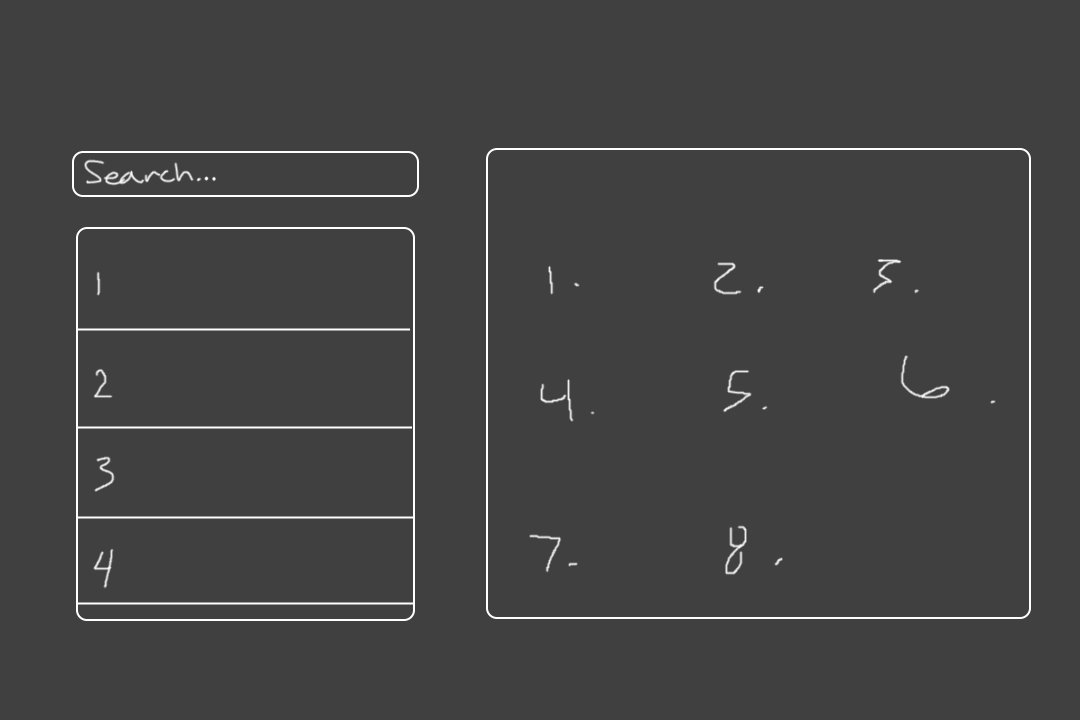 Search...
1
2
3
4
1. 2. 3.
4. 5. 6.
7. 8.